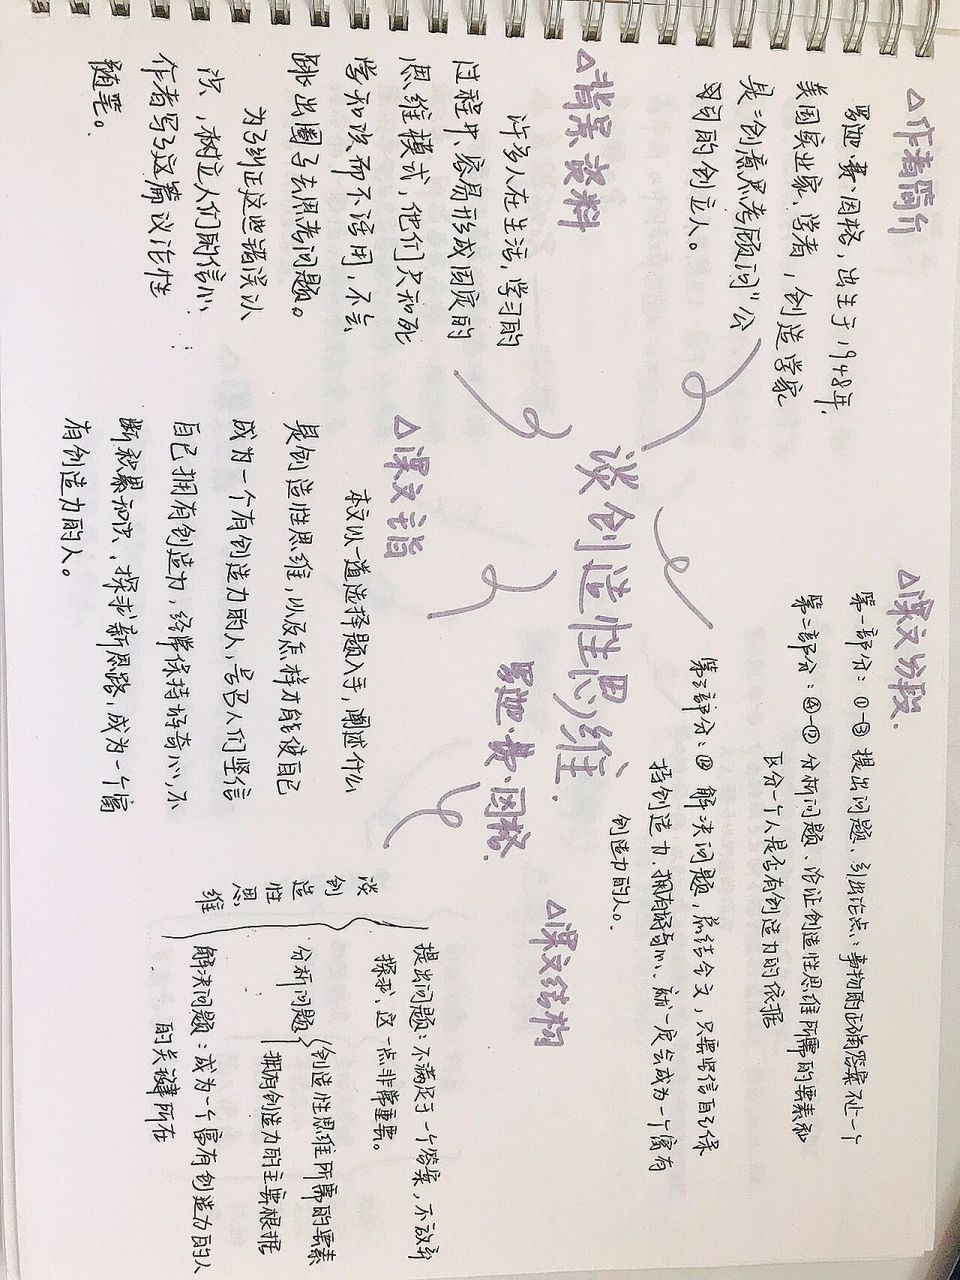 △作者简介
罗迦·费·因格，出生于1948年，
美国实业家、学者，创造学家
是“创意思考顾问”公
司的创立人。
△背景资料
许多人在生活，学习的
过程中、容易形成固定的
思维模式，他们只知死
学知识而不活用，不会
跳出圈子去思考问题。
为纠正这些错误认
识，树立人们的信心
作者写了这篇议论性
随笔。
谈创造性思维.
罗迦·费·因格.
△课文主旨
本文以一道选择题入手，阐述什么
是创造性思维，以及怎样才能使自己
成为一个有创造力的人，号召人们坚信
自己拥有创造力，经常保持好奇心，不
断积累知识，探求新思路，成为一个富
有创造力的人。
△课文分段.
第一部分：①-③ 提出问题、引出论点：事物的正确答案不止一个
第二部分：④-⑫ 分析问题、论证创造性思维所需的要素和
区分一个人是否有创造力的依据
第三部分：⑬ 解决问题，总结全文，只要坚信自己保
持创造力、拥有好奇心、就一定会成为一个富有
创造力的人。
△课文结构
谈创造性思维
提出问题：不满足于一个答案，不放弃
探求、这一点非常重要。
分析问题
创造性思维所需的要素
拥有创造力的主要根据
解决问题：成为一个富有创造力的人
的关键所在